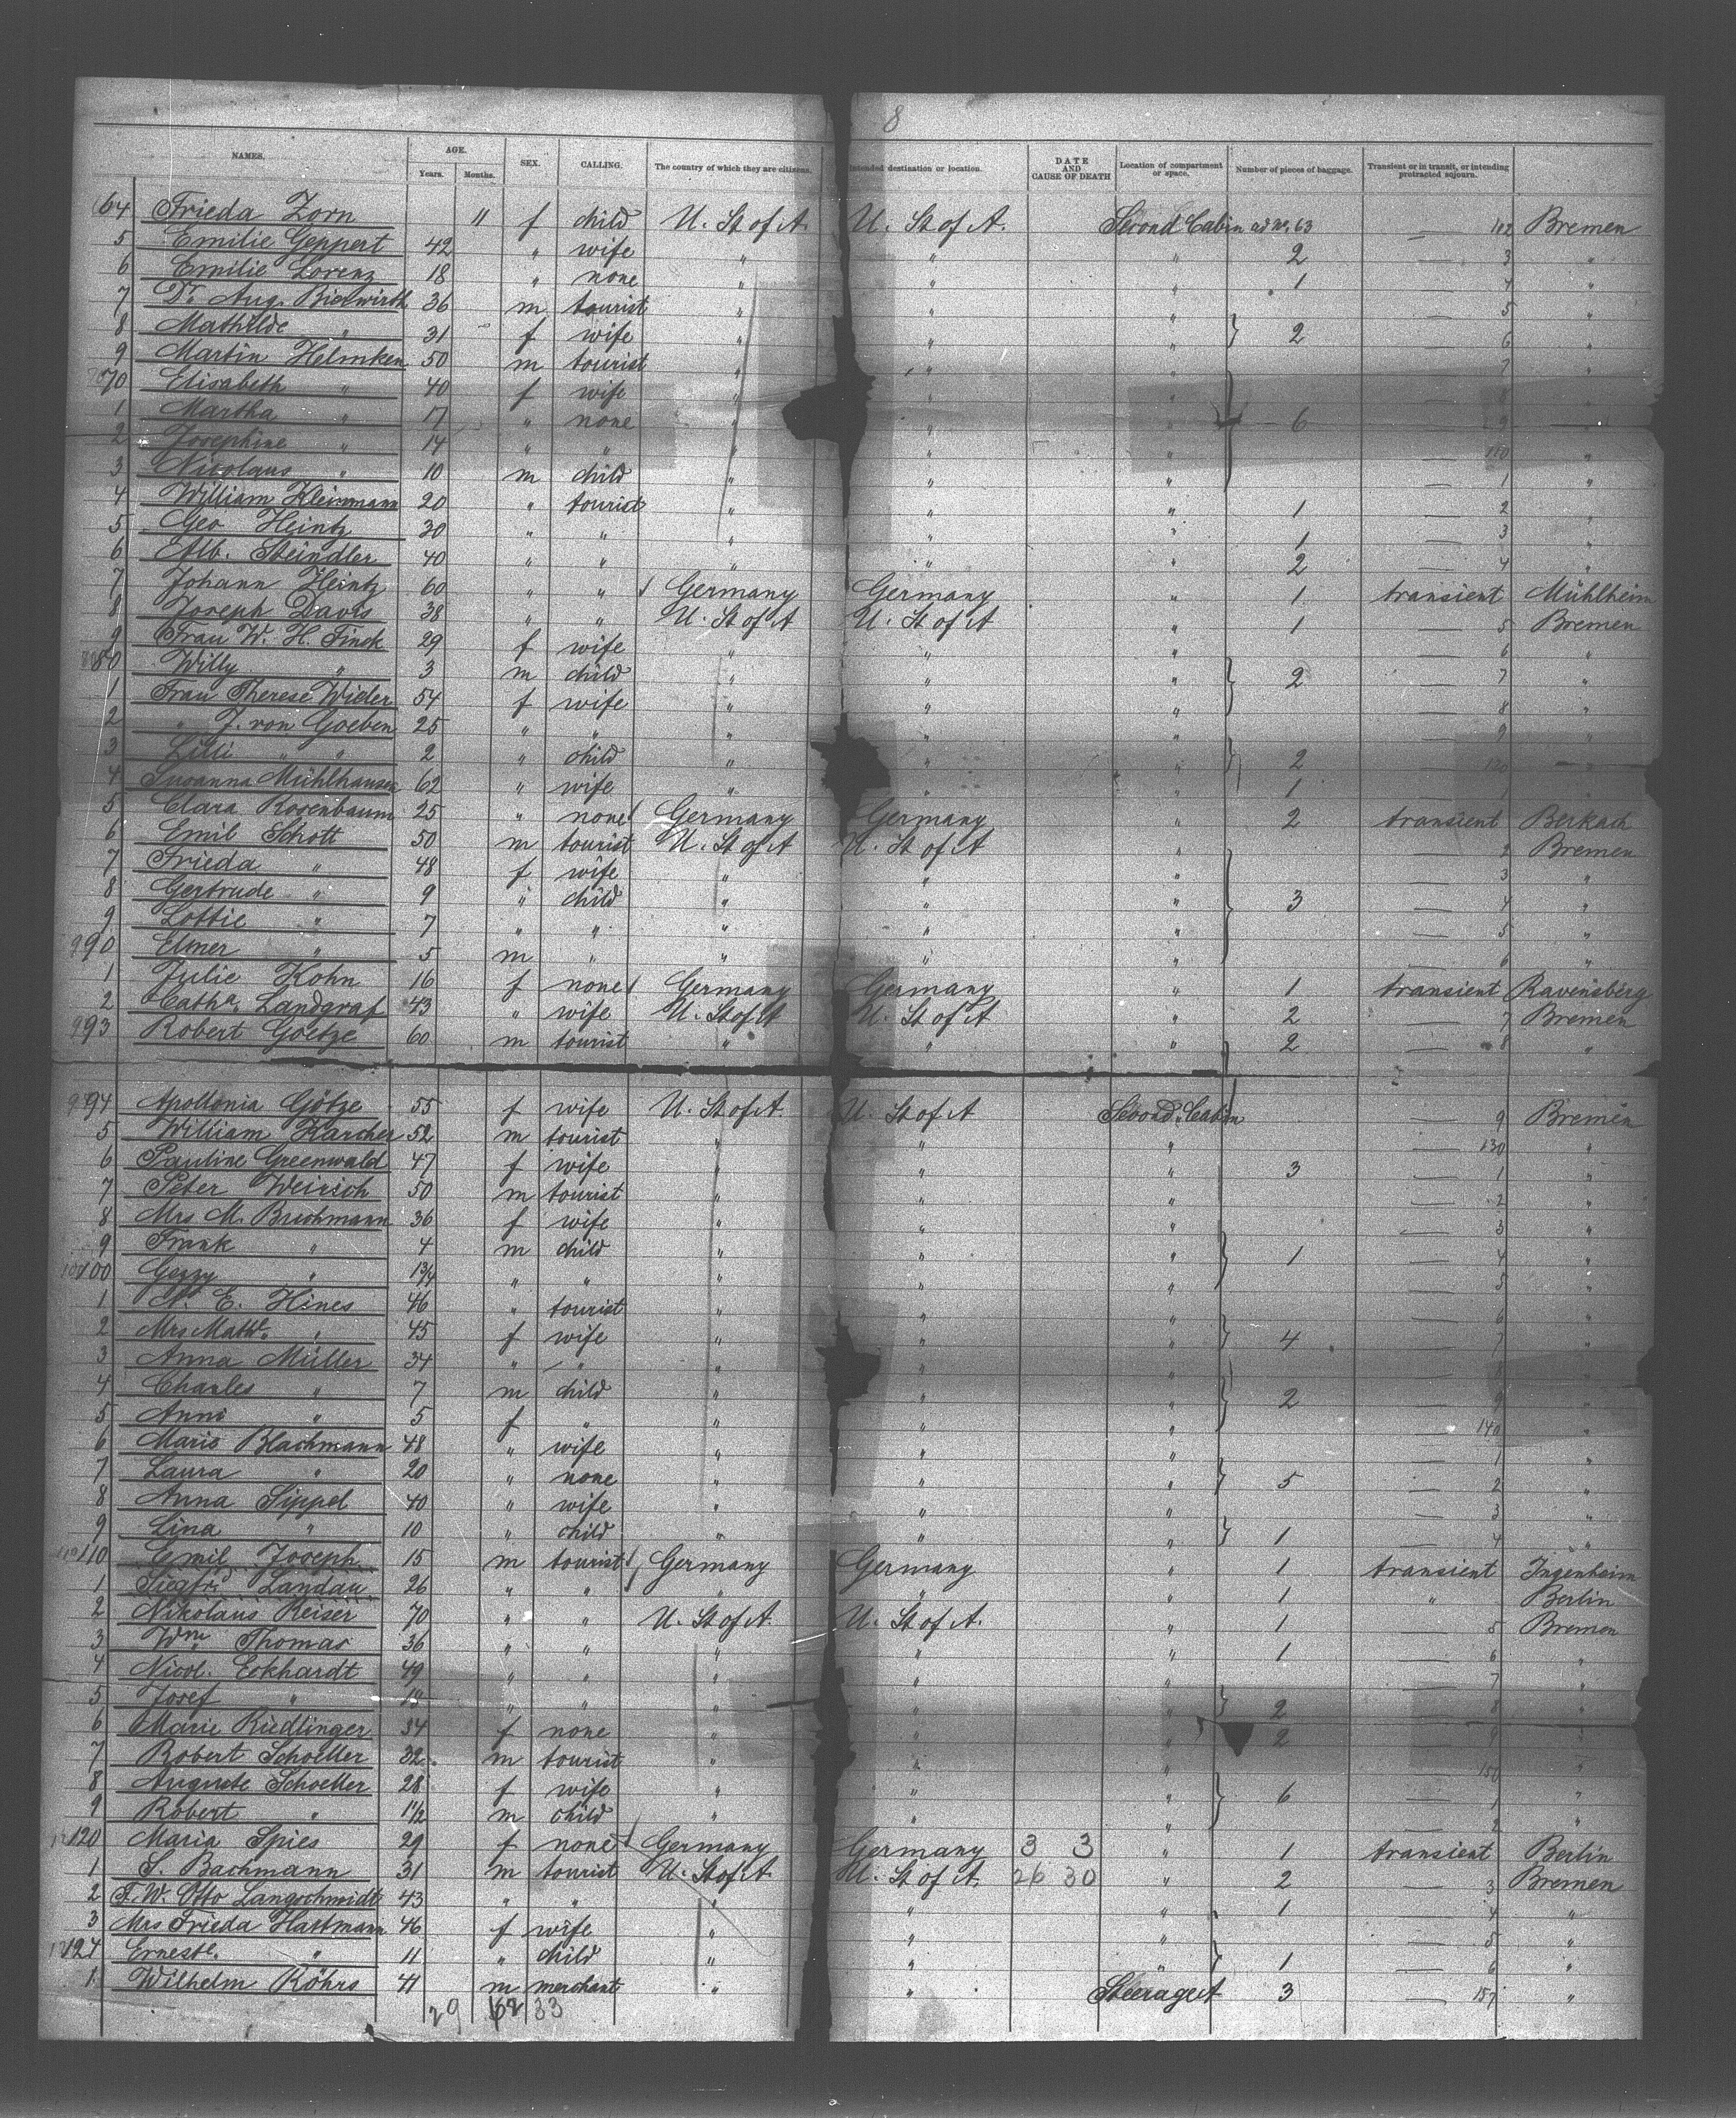 8
NAMES. AGE. Years. Months. SEX. CALLING. The country of which they are citizens. Intended destination or location. DATE AND CAUSE OF DEATH Location of compartment or space. Number of pieces of baggage. Transient or in transit, or intending protracted sojourn.
64 Frieda Zorn 11 f child U. St of A. U. St of A. Second Cabin ad No. 63 — 102 Bremen
5 Emilie Geppert 42 " wife " " " 2 — 3 "
6 Emilie Lorenz 18 " none " " " 1 — 4 "
7 Dr. Aug. Bierwirth 36 m tourist " " " — 5 "
8 Mathilde " 31 f wife " " " } 2 — 6 "
9 Martin Helmken 50 m tourist " " " — 7 "
70 Elisabeth " 40 f wife " " " — 8 "
1 Martha " 17 " none " " " } 6 — 9 "
2 Josephine " 14 " " " " " — 110 "
3 Nicolaus " 10 m child " " " — 1 "
4 William Kleinmann 20 " tourist " " " 1 — 2 "
5 Geo Heintz 30 " " " " " 1 — 3 "
6 Alb. Steindler 40 " " " " " 2 — 4 "
7 Johann Heintz 60 " " Germany Germany " 1 transient Mühlheim
8 Joseph Davis 38 " " U. St of A U. St of A " 1 — 5 Bremen
9 Frau W. H. Finck 29 f wife " " " — 6 "
80 Willy " 3 m child " " " } 2 — 7 "
1 Frau Therese Wieler 54 f wife " " " — 8 "
2 " J. von Goeben 25 " " " " " — 9 "
3 Lilli " " 2 " child " " " } 2 — 120 "
4 Susanna Mühlhausen 62 " wife " " " 1 — 1 "
5 Clara Rosenbaum 25 " none Germany Germany " 2 transient Berkach
6 Emil Schott 50 m tourist U. St of A U. St of A " — 2 Bremen
7 Frieda " 48 f wife " " " — 3 "
8 Gertrude " 9 " child " " " } 3 — 4 "
9 Lottie " 7 " " " " " — 5 "
90 Elmer " 5 m " " " " — 6 "
1 Julie Kohn 16 f none Germany Germany " 1 transient Ravensberg
2 Catha. Landgraf 43 " wife U. St of A U. St of A " 2 — 7 Bremen
93 Robert Goetze 60 m tourist " " " } 2 — 8 "
94 Apollonia Götze 55 f wife U. St of A. U. St of A Second Cabin — 9 Bremen
5 William Karcher 52 m tourist " " " — 130 "
6 Pauline Greenwald 47 f wife " " " 3 — 1 "
7 Peter Weirich 50 m tourist " " " — 2 "
8 Mrs M. Bruchmann 36 f wife " " " — 3 "
9 Frank " 4 m child " " " } 1 — 4 "
100 " 1 3/4 " " " " " — 5 "
1 E. Hines 46 " tourist " " " — 6 "
2 Mrs Mathe. " 45 f wife " " " } 4 — 7 "
3 Anna Müller 34 " " " " " — 8 "
4 Charles " 7 m child " " " } 2 — 9 "
5 Anni " 5 f " " " " — 140 "
6 Marie Blachmann 48 " wife " " " — 1 "
7 Laura " 20 " none " " " } 5 — 2 "
8 Anna Sippel 40 " wife " " " — 3 "
9 Lina " 10 " child " " " } 1 — 4 "
110 Emil Joseph 15 m tourist Germany Germany " 1 transient Ingenheim
1 Siegfrd. Landau 26 " " " " " 1 " Berlin
2 Nikolaus Reiser 70 " " U. St of A. U. St of A. " 1 — 5 Bremen
3 Wm Thomas 36 " " " " " 1 — 6 "
4 Nicol. Eckhardt 49 " " " " " — 7 "
5 Josef " " " " " " } 2 — 8 "
6 Marie Riedlinger 34 f none " " " 2 — 9 "
7 Robert Schoeller 32 m tourist " " " — 150 "
8 Auguste Schoeller 28 f wife " " " } 6 — 1 "
9 Robert " 1 1/2 m child " " " — 2 "
120 Maria Spies 29 f none Germany Germany 3 3 " 1 transient Berlin
1 S. Bachmann 31 m tourist U. St of A. U. St of A. 26 30 " 2 — 3 Bremen
2 F. W. Otto Langschmidt 43 " " " " " 1 — 4 "
3 Mrs Frieda Hattmann 46 f wife " " " — 5 "
124 Erneste. " 11 " child " " " } 1 — 6 "
1 Wilhelm Röhrs 41 m merchant " " Steerage A 3 — 157 "
29 62 33